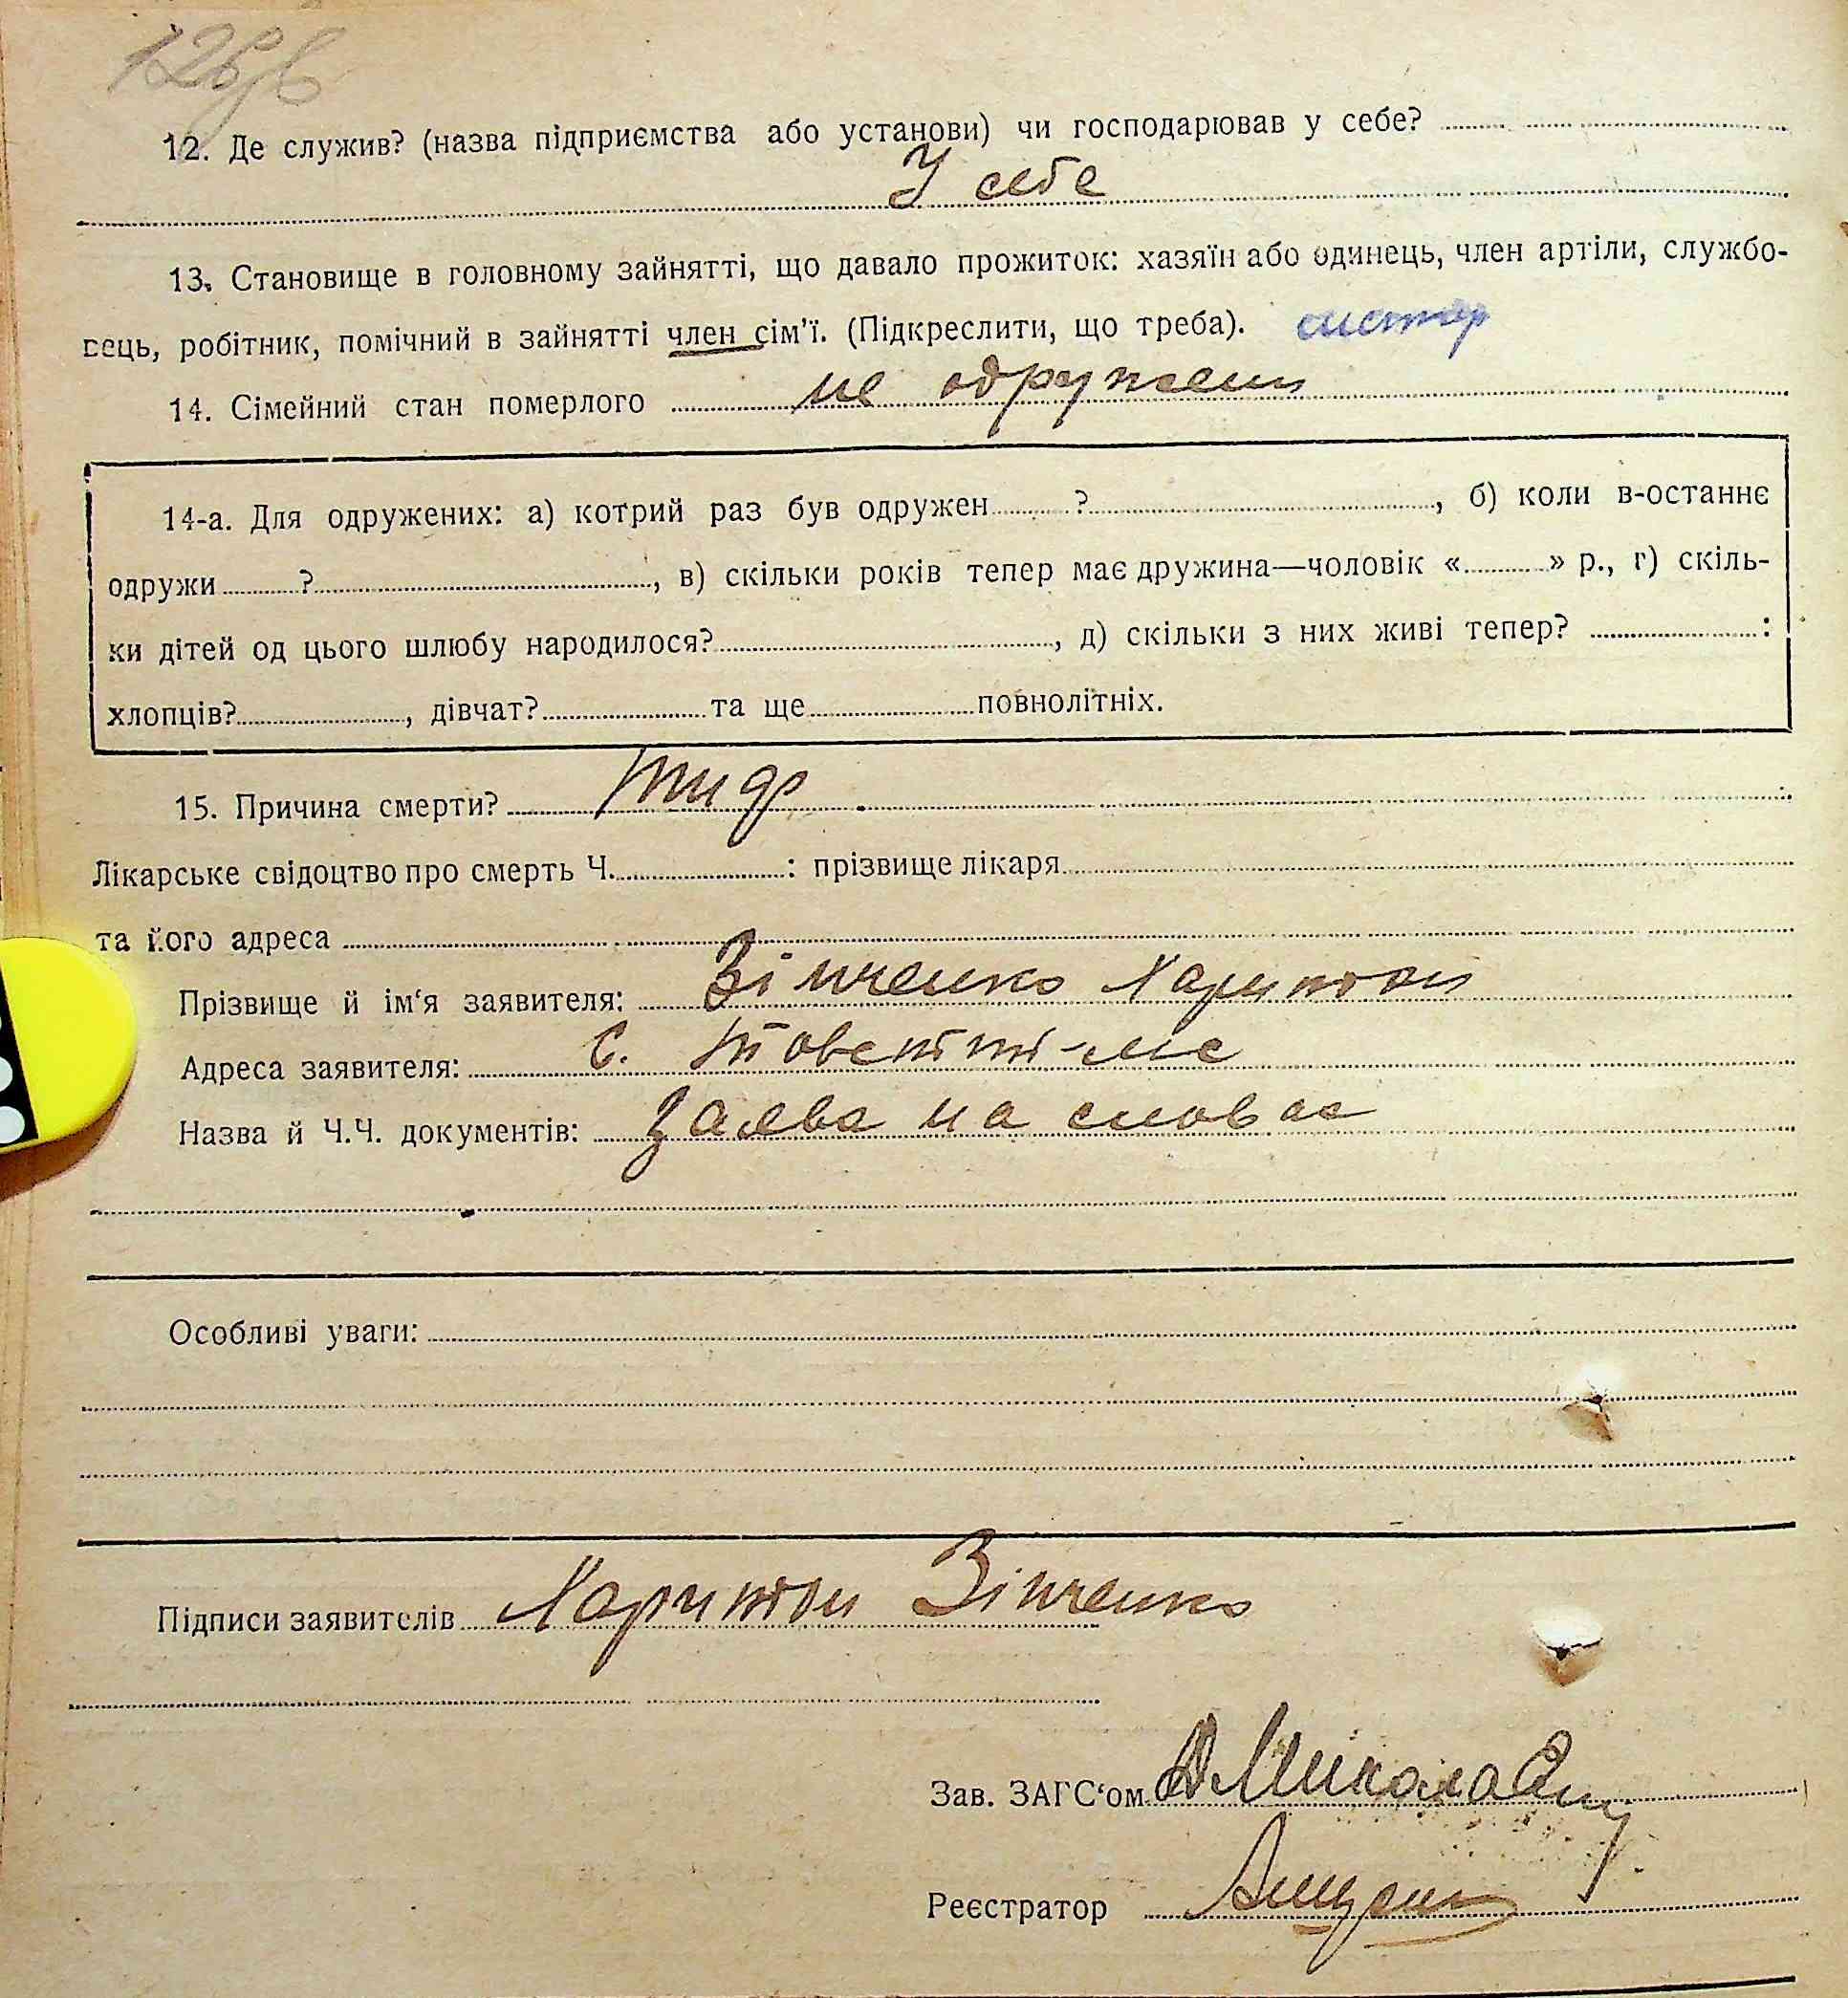 12. Де служив? (назва підприємства або установи) чи господарював у себе?
У себе
13. Становище в головному зайнятті, що давало прожиток: хазяїн або одинець, член артіли, службо-
вець, робітник, помічний в зайнятті член сім'ї. (Підкреслити, що треба).
14. Сімейний стан померлого не одружен
14-а. Для одружених: а) котрий раз був одружен ?, б) коли в-останнє
одружи ?, в) скільки років тепер має дружина—чоловік « » р., г) скіль-
ки дітей од цього шлюбу народилося?, д) скільки з них живі тепер? :
хлопців?, дівчат? та ще повнолітніх.
15. Причина смерти? Тиф
Лікарське свідоцтво про смерть Ч. : прізвище лікаря
та його адреса
Прізвище й ім'я заявителя: Зінченко Харитон
Адреса заявителя: с.
Назва й Ч.Ч. документів: Заява на словах
Особливі уваги:
Підписи заявителів Харитон Зінченко
Зав. ЗАГС'ом
Реєстратор